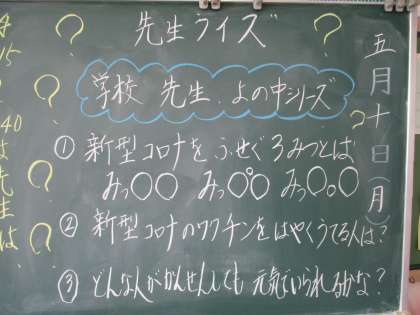 先生ライズ
学校 先生、よの中シリーズ
① 新型コロナをふせぐ3みつとは
みっ○○ みっ○°○ みっ○。○
② 新型コロナのワクチンをはやくうてる人は?
③ どんな人がかんせんしても 元気でいられるかな?
五月十日(月)
15
40
は
先
生
は、